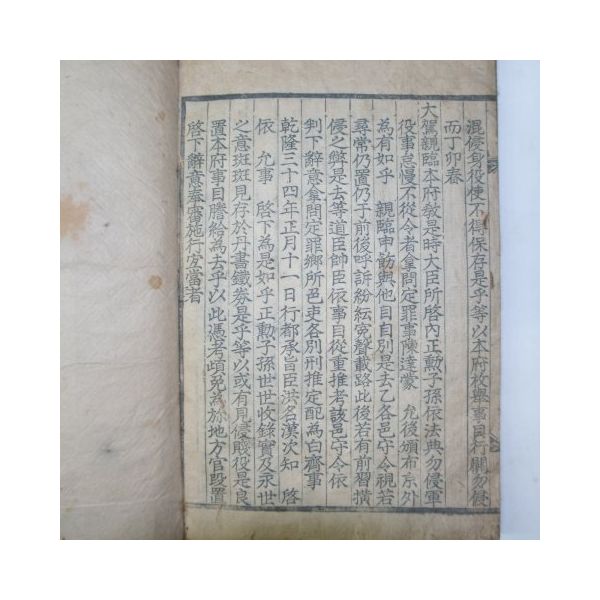 混侵身役使不得保存是乎等以本府枚擧事目行關勿侵
而丁卯春
大駕親臨本府敎是時大臣所啓內正勳子孫依法典勿侵軍
役事怠慢不從令者拿問定罪事陳達蒙　允後頒布京外
爲有如乎　親臨申飭與他目自別是去乙各邑守令視若
尋常仍置仍于前後呼訴紛紜寃聲載路此後若有前習橫
侵之弊是去等道臣帥臣依事目從重推考該邑守令依
判下辭意拿問定罪鄕所邑吏各別刑推定配爲白齊事
乾隆三十四年正月十一日行都承旨臣洪名漢次知　啓
依　允事　啓下爲是如乎正勳子孫世世收錄實及永世
之意斑斑見存於丹書鐵券是乎等以或有見侵賤役是良
置本府事目謄給爲去乎以此憑考頉免爲於地方官段置
啓下辭意奉審施行宜當者